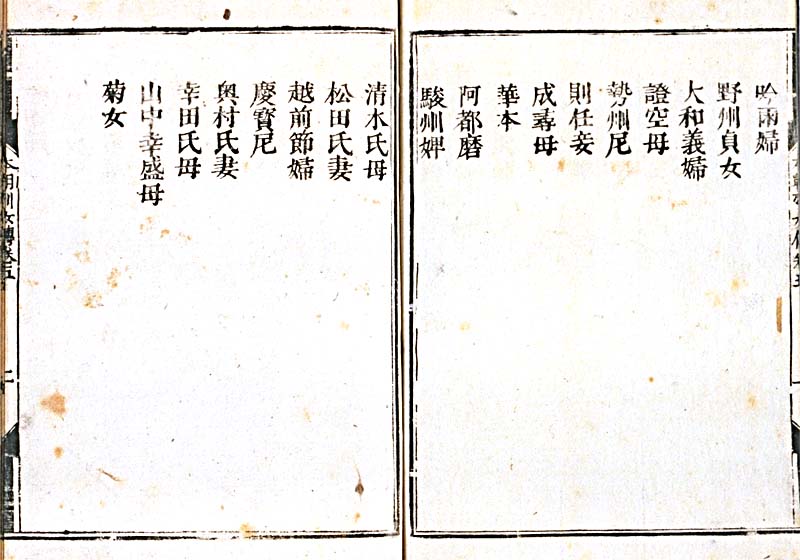 吟雨婦
野州貞女
大和義婦
證空母
勢州尼
則任妾
成尋母
華本
阿都磨
駿州婢
清水氏母
松田氏妻
越前節婦
慶寳尼
奥村氏妻
幸田氏母
山中幸盛母
菊女
本朝列女傳卷五